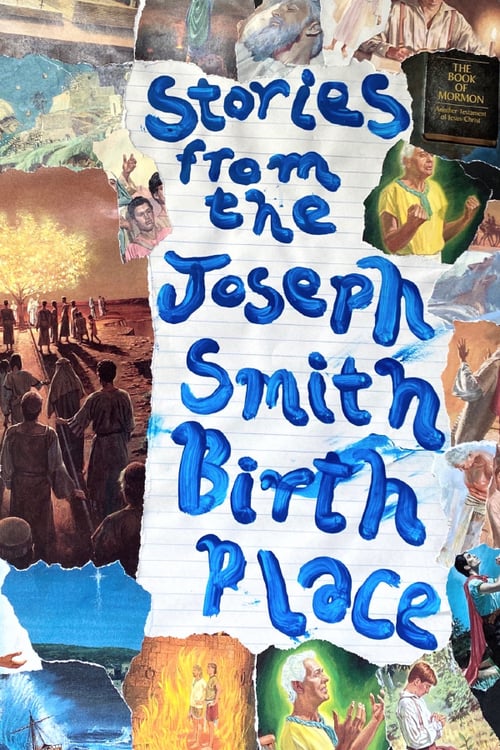 Stories
from
the
Joseph
Smith
Birth
Place
THE
BOOK
OF
MORMON
Another Testament
of Jesus Christ